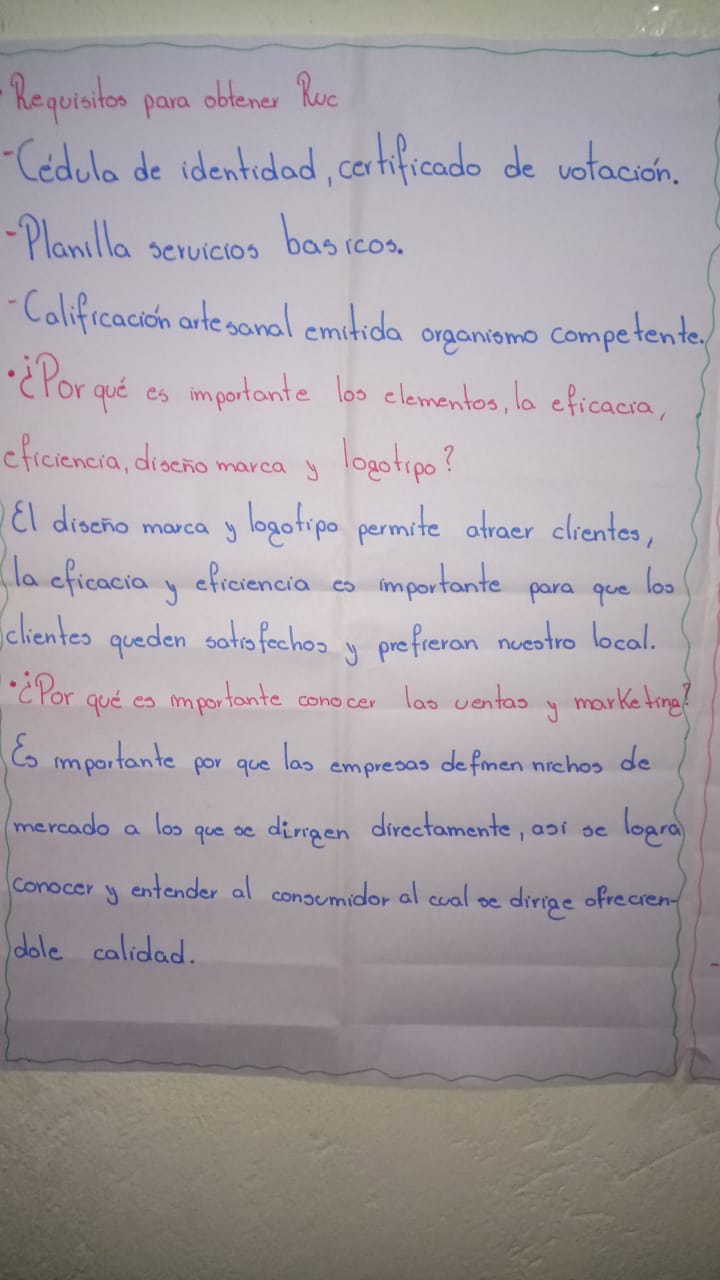 • Requisitos para obtener Ruc
- Cédula de identidad, certificado de votación.
- Planilla servicios basicos.
- Calificación artesanal emitida organismo competente.
• ¿Por qué es importante los elementos, la eficacia,
eficiencia, diseño marca y logotipo?
El diseño marca y logotipo permite atraer clientes,
la eficacia y eficiencia es importante para que los
clientes queden satisfechos y prefieran nuestro local.
• ¿Por qué es importante conocer las ventas y marketing?
Es importante por que las empresas definen nichos de
mercado a los que se dirigen directamente, asi se logra
conocer y entender al consumidor al cual se dirige ofrecien-
dole calidad.